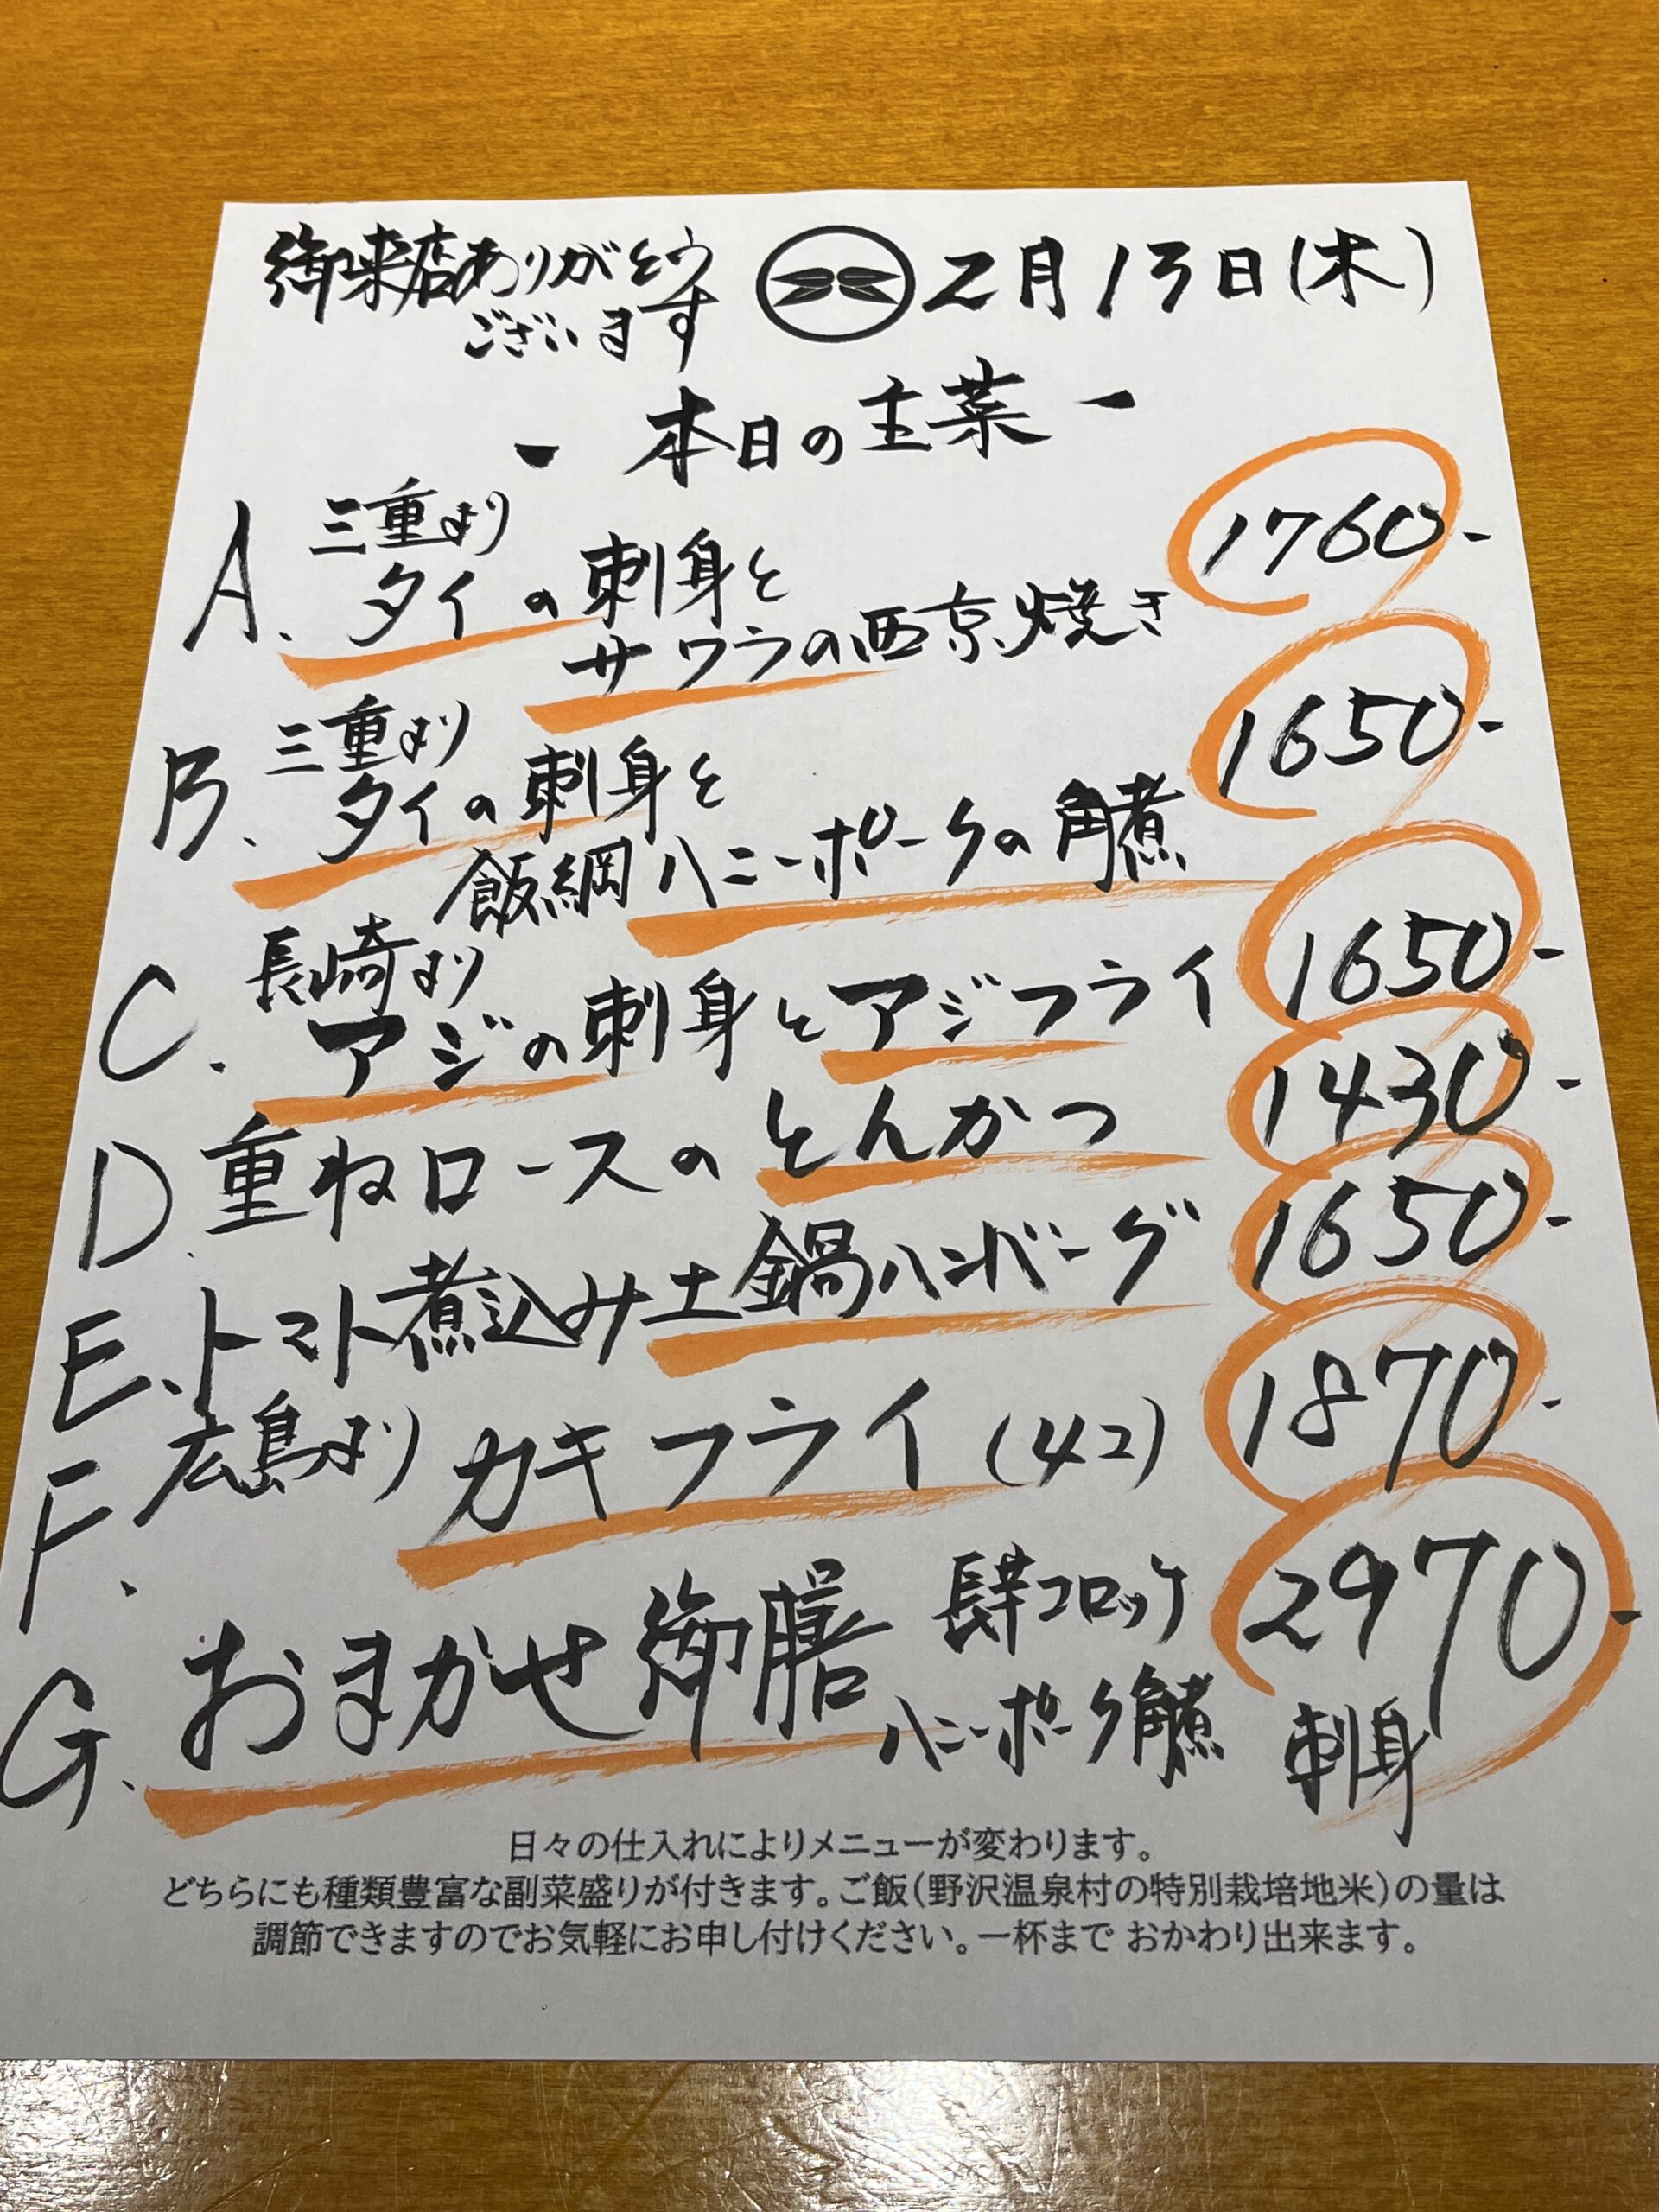 御来店ありがとう
ございます
2月13日(木)
- 本日の主菜 -
A. 三重より
タイの刺身と
サワラの西京焼き
1760-
B. 三重より
タイの刺身と
飯綱ハニーポークの角煮
1650-
C. 長崎より
アジの刺身とアジフライ
1650-
D. 重ねロースのとんかつ
1430-
E. トマト煮込み土鍋ハンバーグ
1650-
F. 広島より カキフライ(4コ)
1870-
G. おまかせ御膳
長芋コロッケ
ハニーポーク角煮
刺身
2970-
日々の仕入れによりメニューが変わります。
どちらにも種類豊富な副菜盛りが付きます。ご飯(野沢温泉村の特別栽培地米)の量は
調節できますのでお気軽にお申し付けください。一杯まで おかわり出来ます。